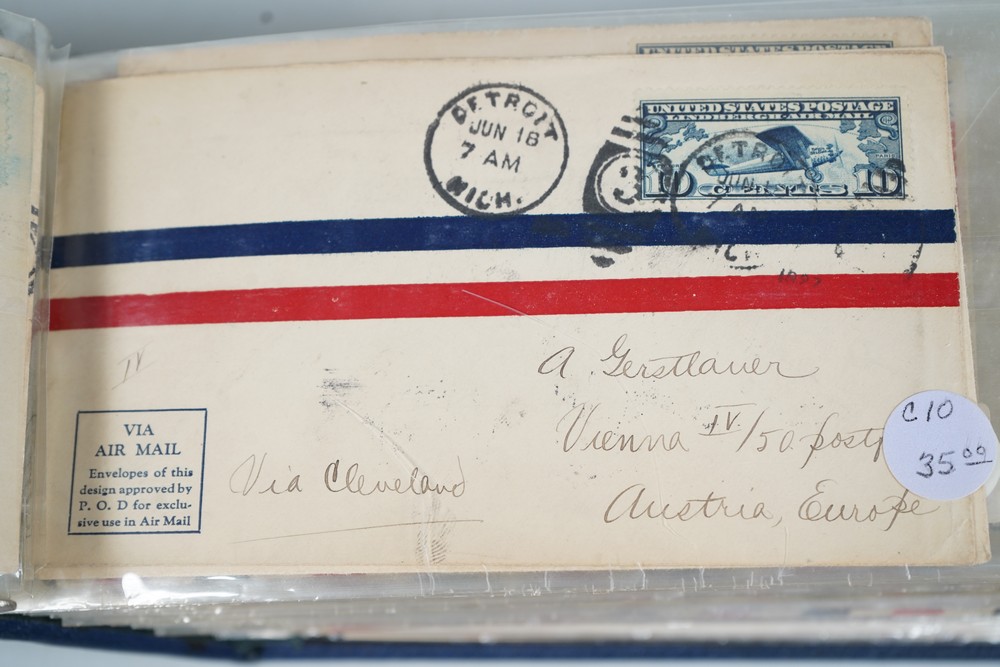 UNITED STATES POSTAGE
DETROIT
JUN 18
7 AM
MICH.
UNITED STATES POSTAGE
LINDBERGH AIR MAIL
PARIS
10 CENTS 10
DETR
JUN
3
IV
A Gerstlauer
Vienna IV./50. post
Austria, Europe
Via Cleveland
VIA
AIR MAIL
Envelopes of this
design approved by
P. O. D for exclu-
sive use in Air Mail
C10
35.00